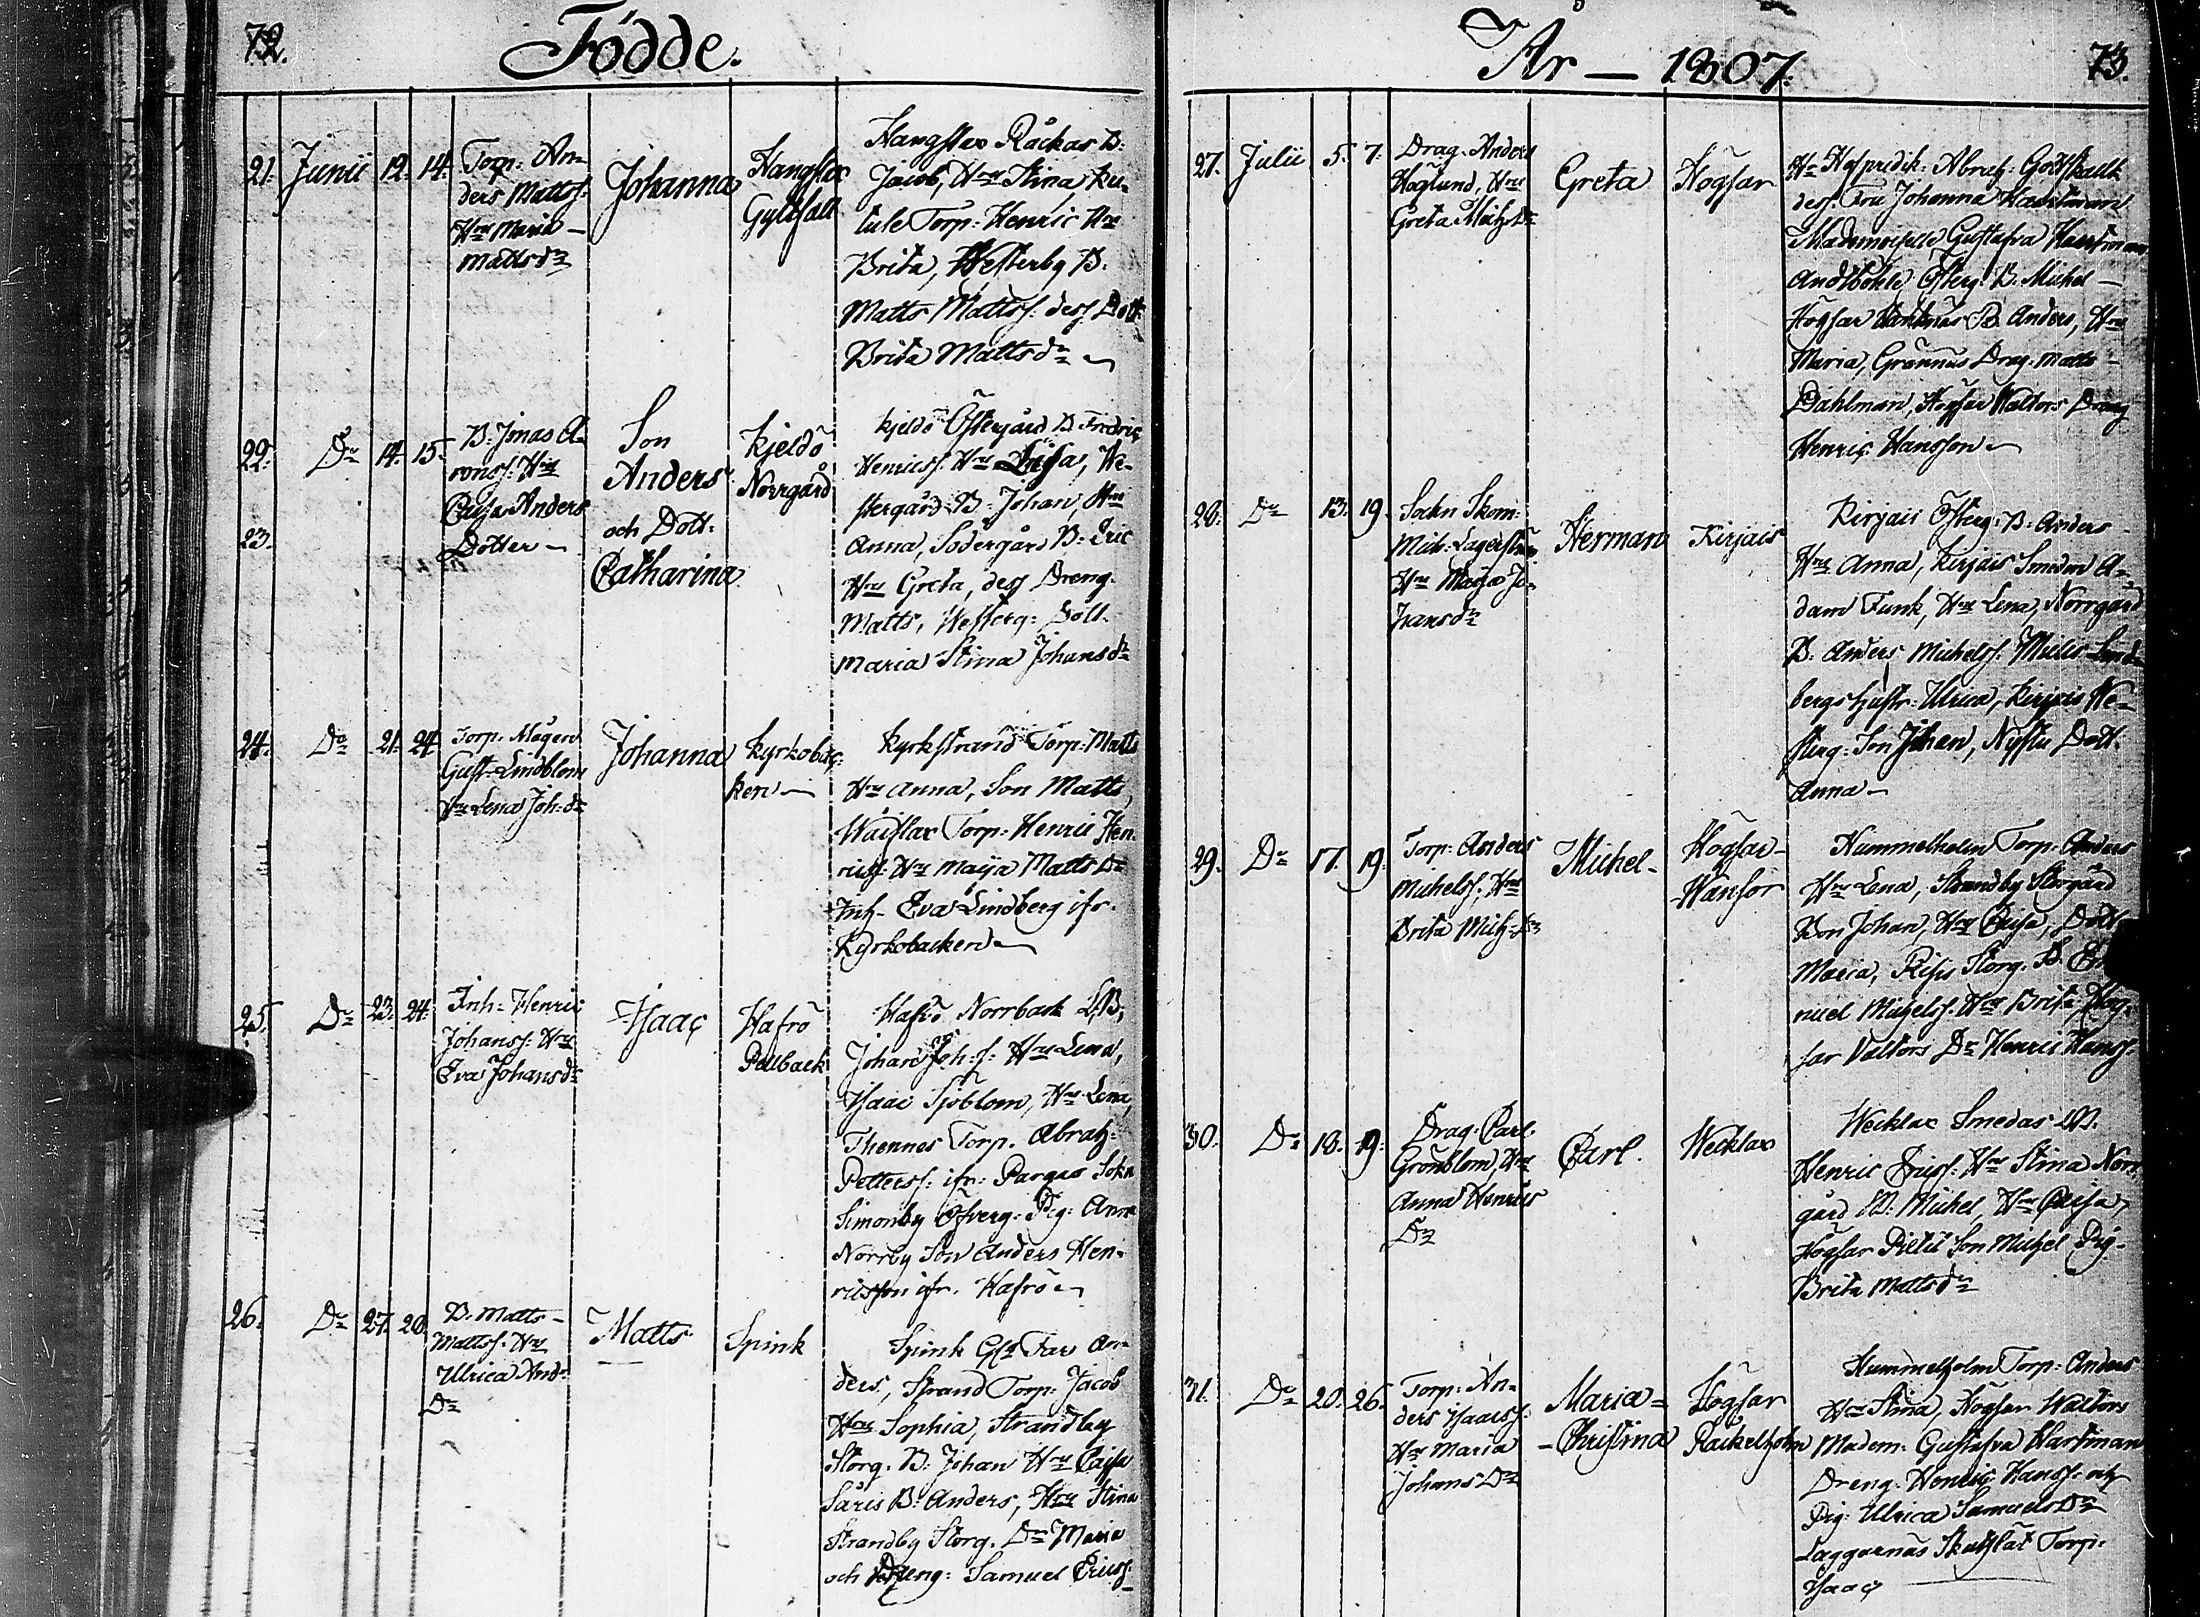 72.
Födde.
21. Junii 12. 14.
Torp: An=
ders Mattss:
Hru Maria
Mattsdr
Johanna
Hangslax
Gyltsalt
Hangslax Råckas B:
Jacob, Hru Stina,
Torp: Henric Hru
Brita, Westerby B:
Matts Mattss: dess Dott:
Brita Mattsdr
22.
23.
Do 14. 15.
B: Jonas A=
ronss: Hru
Caisa Anders
Dotter
Son
Anders
och Dott:
Catharina
Kjeldö
Norrgård
Kjeldö Östergård B Fredric
Henricss: Hru Lisa, We=
stergård B: Johan, Hru
Anna, Södergård B: Eric
Hru Greta, dess Dreng
Matts, Westerg: Dott.
Maria Stina Johansdr
24. Do 21. 24.
Torp: Mågen
Gust: Lindblom
Hru Lena Joh:dr
Johanna
Kyrkobac=
ken
Kyrkstrand Torp: Matts
Hru Anna, Son Matts,
Waislax Torp: Henric Hen=
ricss: Hru Maija Matts Dr
Inh: Eva Lindberg ifr.
Kyrkobacken
25. Do 23. 24.
Inh: Henric
Johanss: Hru
Eva Johansdr
Isaac
Hafrö
Pellback
Hafrö Norrback LB,
Johan Joh:s: Hru Lena,
Isaac Sjöblom, Hru Lena,
Thennes Torp. Abrah:
Petterss: ifr: Pargas Sokn
Simonby Öfverg: Pig: Anna
Norrby Son Anders Hen=
ricsson ifr. Hafrö
26. Do 27. 28.
B. Matts
Mattss: Hru
Ulrica And:
Dr
Matts
Spink
Spink Gla Far An=
ders, Strand Torp: Jacob
Hru Sophia, Strandby
Storg. B: Johan Hru Caisa
Säris B: Anders, Hru Stina
Strandby Storg. Dr Maria
och Dreng: Samuel Ericss:
År — 1807.
73.
27. Julii 5. 7.
Drag. Anders
Haglund, Hru
Greta Mich:dr
Greta
Högsar
Hr Hofpredik: Abrah: Gottskalk
dess Fru Johanna Hartman
Mademoiselle Gustafva Hartman
Andböhle Österg: B. Michel
Högsar B. Anders, Hru
Maria, Grännäs Drag: Matts
Dahlman, Högsar Waltors Dreng
Henric Hansson
28. Do 13. 19.
Sokn Skom:
Mich: Lagerström
Hru Maja Jo=
hansdr
Herman
Kirjais
Kirjais Österg: B: Anders
Hru Anna, Kirjais Smeden A=
dam Funk, Hru Lena, Norrgård
B. Anders Michelss: Lind=
bergs hustr: Ulrica, Kirjais We=
sterg: Son Johan, Dott.
Anna
29. Do 17. 19.
Torp: Anders
Michelss; Hru
Brita Mich:Dr
Michel
Högsar
Hansor
Hummelholm Torp: Anders
Hru Lena, Strandby Storgård
Bon Johan, Hru Caisa, Dott
Maria, Storg. B.
Michelss. Hru Brita Hög=
sar Valtors Dr Henric Hanss:
30. Do 18. 19.
Drag: Carl
Grönblom, Hru
Anna Henrics
Dr
Carl.
Wecklax
Wecklax Smedas B.
Henric Ericss: Hru Stina Norr
gård B: Michel, Hru Caisa,
Högsar Son Michel Pig:
Brita Mattsdr
31. Do 20. 26.
Torp: An=
ders Isaacss:
Hru Maria
Johans Dr
Maria=
Christina
Högsar
Räckelholm
Hummelholm Torp: Anders
Hru Stina, Högsar Waltors
Madem: Gustafva Hartman
Dreng. Henric Hanss: och
Pig: Ulrica Samuels Dr
Laggarnäs Torp:
Isaac